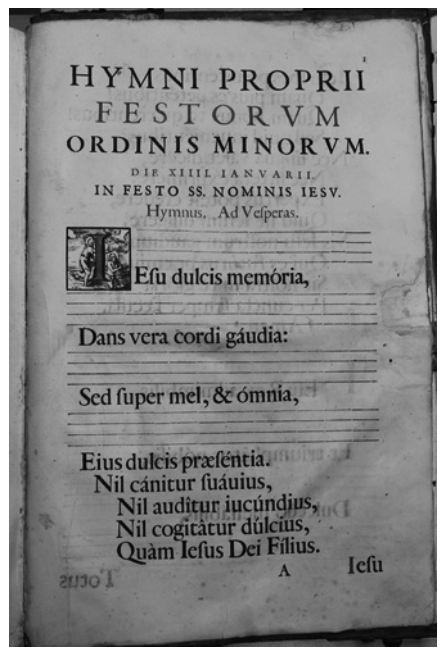 HYMNI PROPRII
FESTORVM
ORDINIS MINORVM.
DIE XIIII. IANVARII.
IN FESTO SS. NOMINIS IESV.
Hymnus. Ad Veſperas.
IEſu dulcis memória,
Dans vera cordi gáudia:
Sed ſuper mel, & ómnia,
Eius dulcis præſéntia.
Nil cánitur ſuáuius,
Nil audítur iucúndius,
Nil cogitátur dúlcius,
Quàm Ieſus Dei Fílius.
A Ieſu